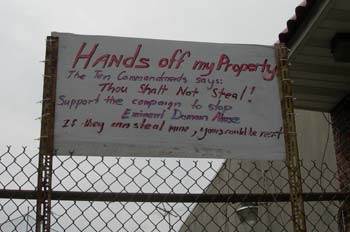 Hands off my Property
The Ten Commandments says:
Thou Shalt Not Steal!
Support the campaign to stop
Eminent Domain Abuse
If they can steal mine, yours could be next